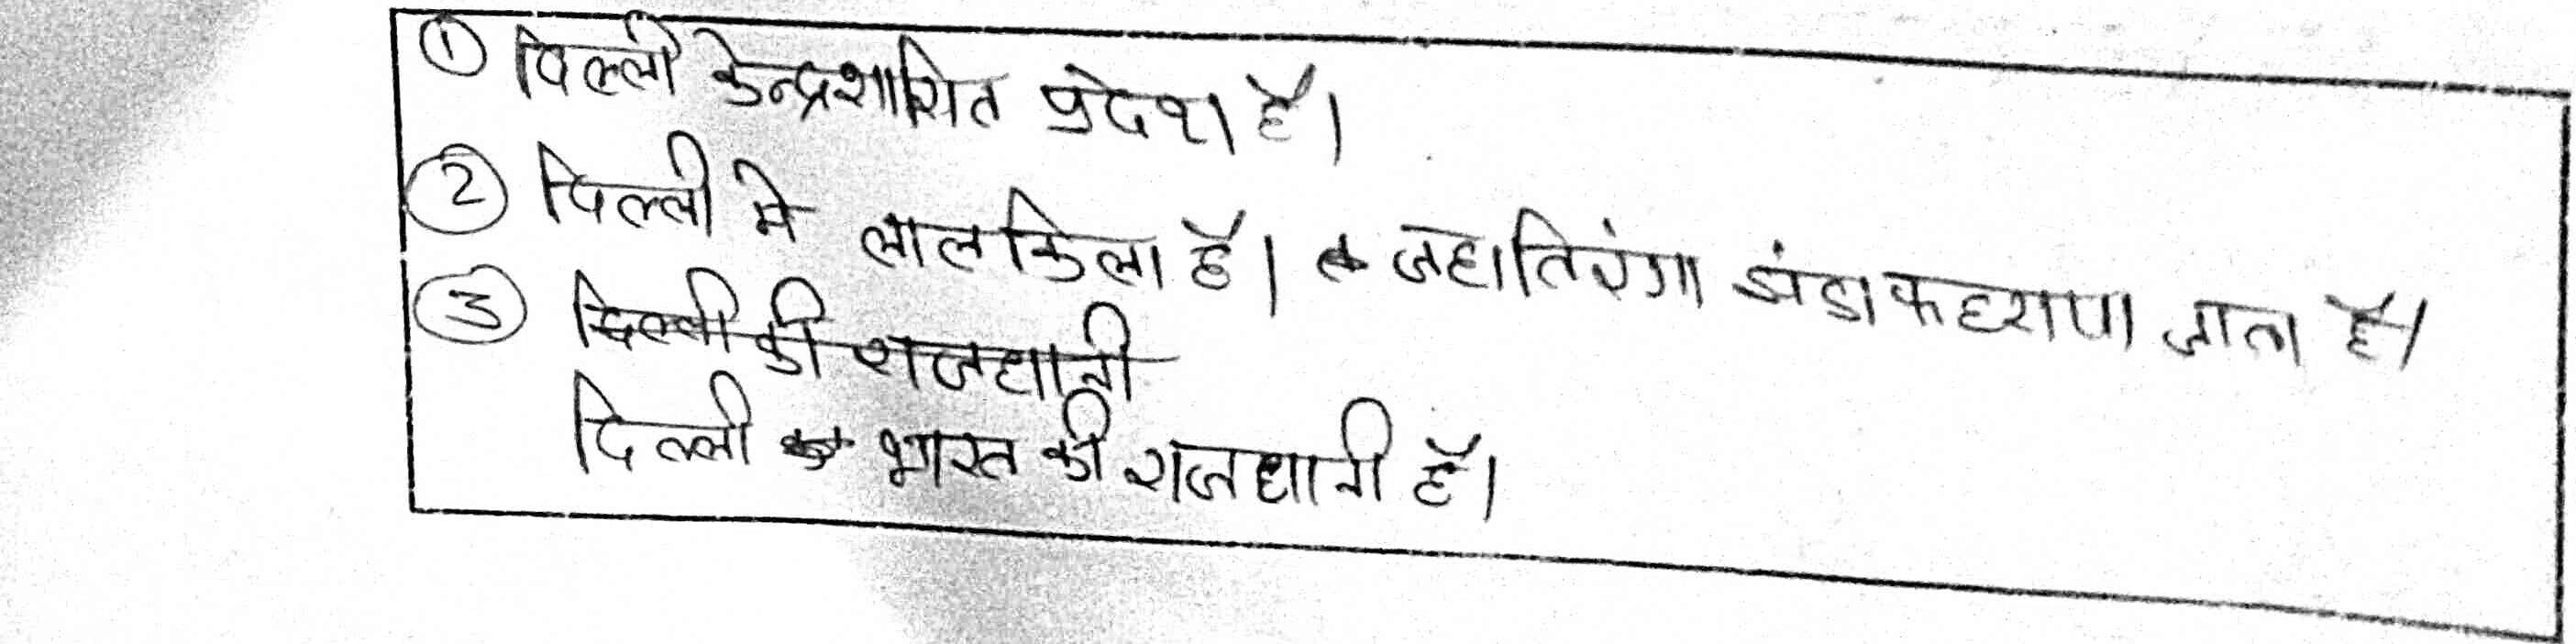 ① दिल्ली केन्द्रशाशित प्रदेश है।
② दिल्ली मे लाल किला है। जहा तिरंगा झंडा फहराया जाता है।
③ दिल्ली की राजधानी
दिल्ली भारत की राजधानी है।